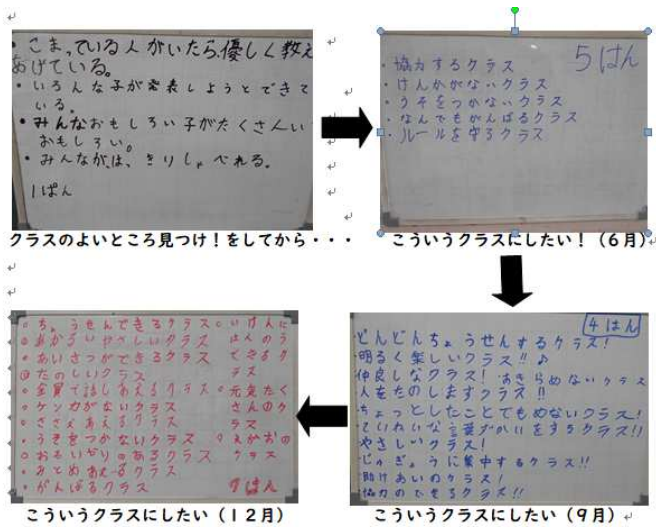 ・こまっている人がいたら、優しく教え
あげている。
・いろんな子が発表しようとできて
いる。
・みんなおもしろい子がたくさんい
おもしろい。
・みんなが、は、きりしゃべれる。
1ぱん
クラスのよいところ見つけ！をしてから・・・
5はん
・協力するクラス
・けんかがないクラス
・うそをつかないクラス
・なんでもがんばるクラス
・ルールを守るクラス
こういうクラスにしたい！（6月）
4はん
・どんどんちょうせんするクラス！
・明るく楽しいクラス!!♪
・仲良しなクラス！ あきらめないクラス
・人をたのしますクラス!!
・ちょっとしたことでもめないクラス！
・ていねいな言葉づかいをするクラス!!
・やさしいクラス！
・じゅぎょうに集中するクラス!!
・助けあいのクラス！
・協力のできるクラス!!
こういうクラスにしたい（9月）
○ちょうせんできるクラス
◎あかるいやさしいクラス
○あいさつができるクラス
◎たのしいクラス
○全員で話しあえるクラス
○ケンカがないクラス
○ささえあえるクラス
○うそをつかないクラス
○おもいやりのあるクラス
○みとめあえるクラス
○がんばるクラス
○いけんに
はんのう
できるク
ラス
○元気たく
さんのク
ラス
○えがおの
クラス
はん
こういうクラスにしたい（12月）